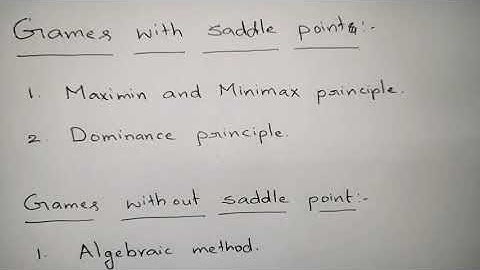 Games with saddle point:-
1. Maximin and Minimax principle.
2. Dominance principle.
Games without saddle point:-
1. Algebraic method.